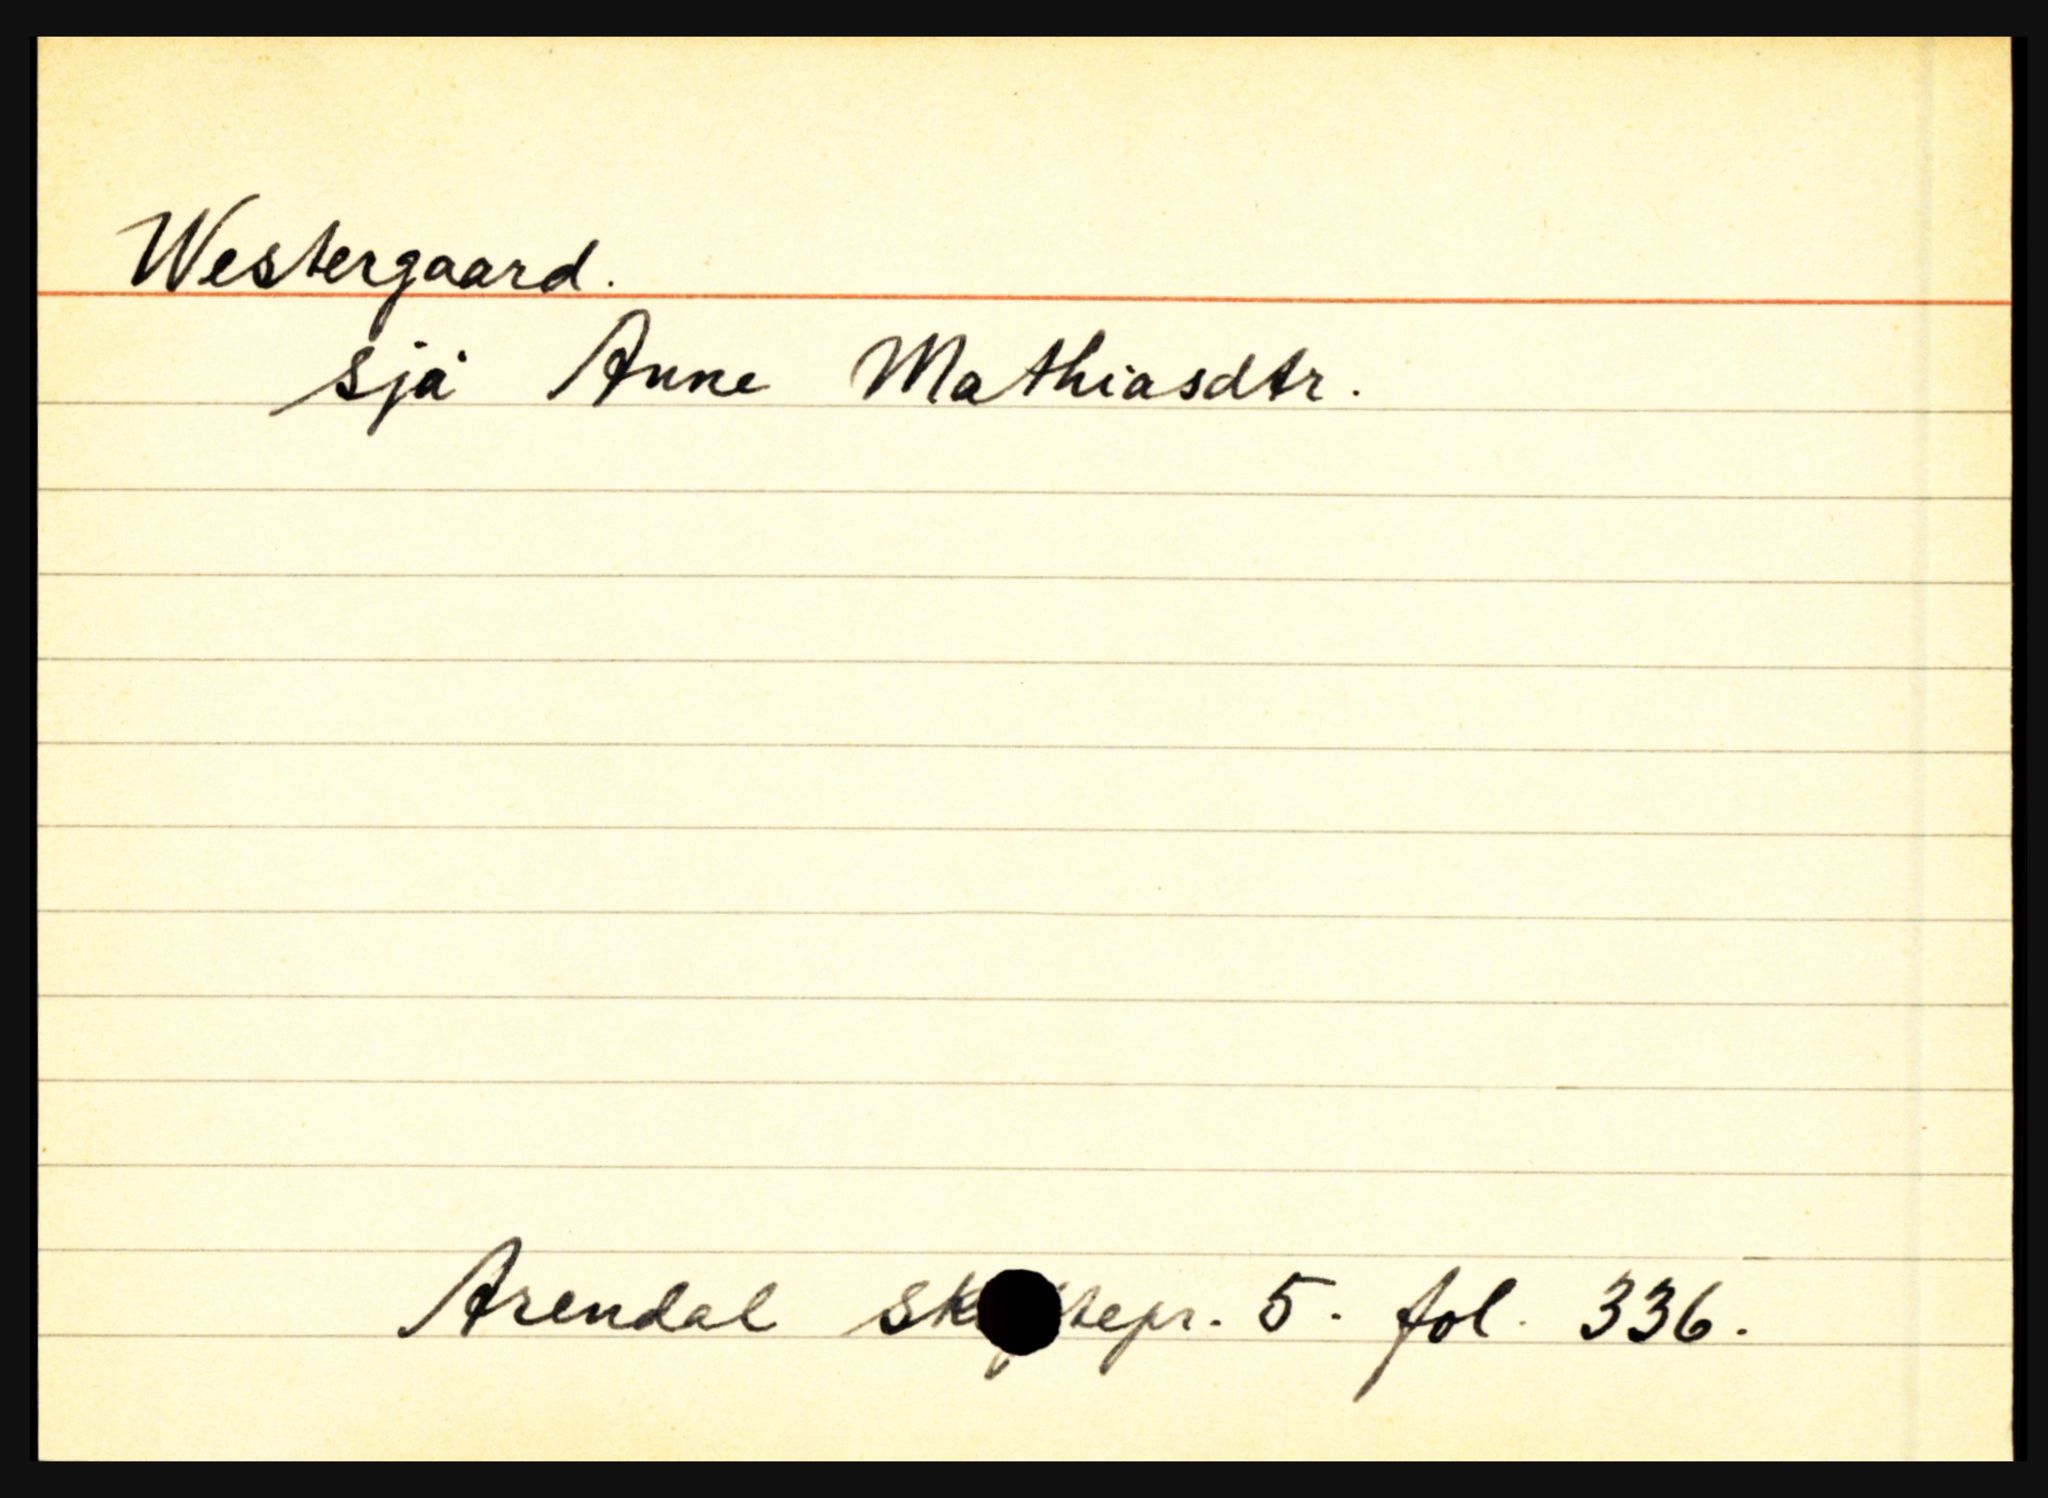 Westergaard.
sjå Anne Mathiasdtr.
Arendal 5. fol. 336.